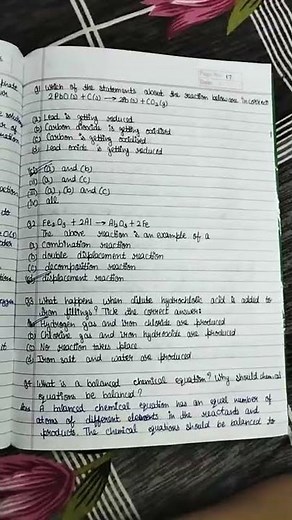 17
Q1 Which of the statements about the reaction below are incorrect
2PbO(s) + C(s) → 2Pb(s) + CO₂(g)
(a) Lead is getting reduced
(b) Carbon dioxide is getting oxidised
(c) Carbon is getting oxidised
(d) Lead oxide is getting reduced
(i) (a) and (b)
(ii) (a) and (c)
(iii) (a), (b) and (c)
(iv) all
Q2 Fe₂O₃ + 2Al → Al₂O₃ + 2Fe
The above reaction is an example of a
(a) combination reaction
(b) double displacement reaction
(c) decomposition reaction
displacement reaction
Q3 What happens when dilute hydrochloric acid is added to
iron fillings? Tick the correct answer
Hydrogen gas and iron chloride are produced
(b) Chlorine gas and iron hydroxide are produced
(c) No reaction takes place
(d) Iron salt and water are produced
Q4 What is a balanced chemical equation? Why should chemical
equations be balanced?
Ans A balanced chemical equation has an equal number of
atoms of different elements in the reactants and
products. The chemical equations should be balanced to